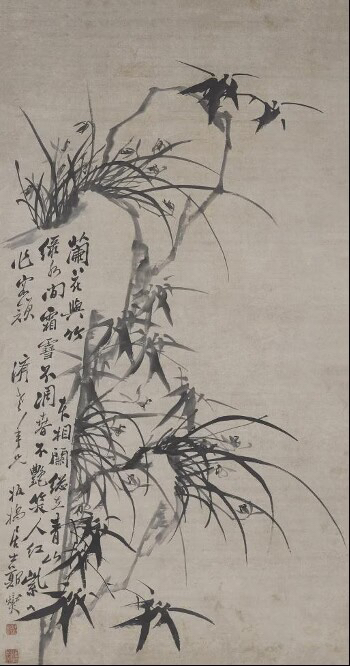 蘭花與竹本相關總在青山
綠水間霜雪不凋春不艷笑人紅紫
作客頑濟老年兄板橋居士鄭燮